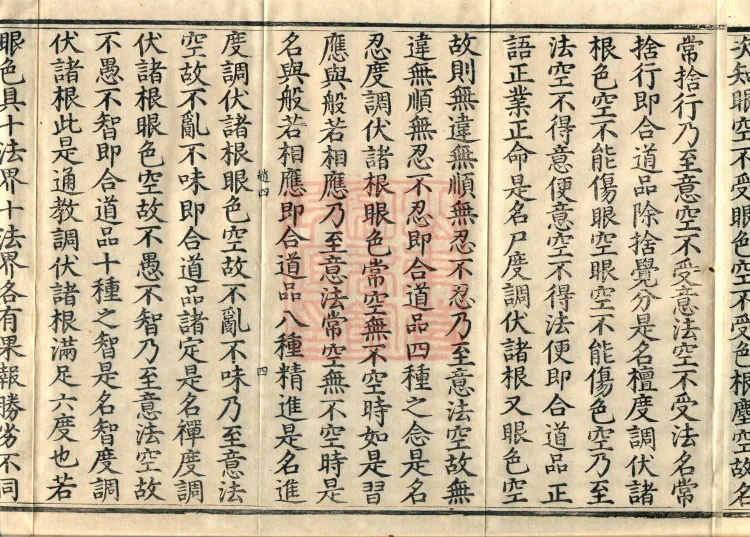 次知眼空不受眼色空不受色根塵空故名
常捨行乃至意空不受意法空不受法名常
捨行即合道品除捨覺分是名檀度調伏諸
根色空不能傷眼空眼空不能傷色空乃至
法空不得意便意空不得法便即合道品正
語正業正命是名尸度調伏諸根又眼色空
故則無違無順無忍不忍乃至意法空故無
違無順無忍不忍即合道品四種之念是名
忍度調伏諸根眼色常空無不空時如是習
應與般若相應乃至意法常空無不空時是
名與般若相應即合道品八種精進是名進
趙四 四
度調伏諸根眼色空故不亂不味乃至意法
空故不亂不味即合道品諸定是名禪度調
伏諸根眼色空故不愚不智乃至意法空故
不愚不智即合道品十種之智是名智度調
伏諸根此是通教調伏諸根滿足六度也若
眼色具十法界十法界各有果報勝劣不同